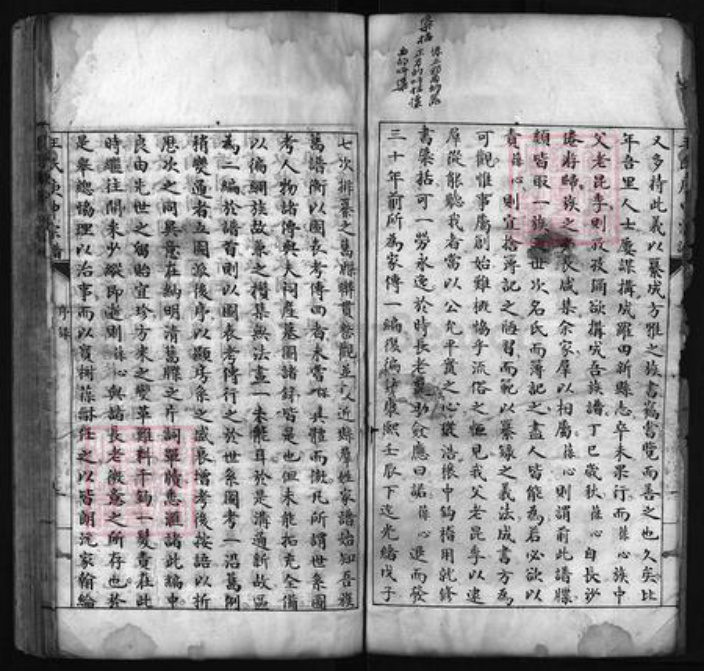 又多持此義以纂成方雅之族書竊當覽而善之也久矣比
年吾里人士屢謀搆成羅田新縣志卒未果行而葆心族中
父老昆季則孜孜圖欲搆成吾族譜丁巳歲秋葆心自長沙
歸族之長咸集余家羣以相屬葆心則謂前此譜牒
類皆取一族之世次名氏而簿記之盡人皆能為若必欲以
責葆心則宜捨簿記之陋習而範以纂錄之義法成書方為
可觀惟事屬創始難概協乎流俗之恒見我父老昆季以逮
羣從能聽我者當以公允平實之心從浩穰中鉤稽用就修
書槩括可一勞永逸於時長老僉應曰諾葆心退而發
三十年前所為家傳一編復徧康熙壬辰下迄光緒戊子
七次排纂之舊牒聯貫參觀並及近縣羣姓家譜始知吾族
舊譜衡以圖表考傳四者未嘗無具體而微凡所謂世系圖
考人物諸傳與夫祠產墓圖諸錄皆是也但未能拓充全備
以徧網族故兼之攢集無法畫一未能耳於是溝通新故區
為二編於譜首則以圖表考傳行之於世系圖考一沿舊例
稍變通者五圖派後序以顯房系之盛衰增考後按語以析
歷次之同異意在納明清舊牒之片詞單牘悉匯諸此編中
良由先世之留貽宜珍方來之變革難料千鈞一髮責在此
時繼往開來少縱即逝則葆心與諸長老微意之所存也於
是舉總協理以治事而以寳樹葆龢任之以皆朗沅家翰綸
王氏庚申宗譜
序錄